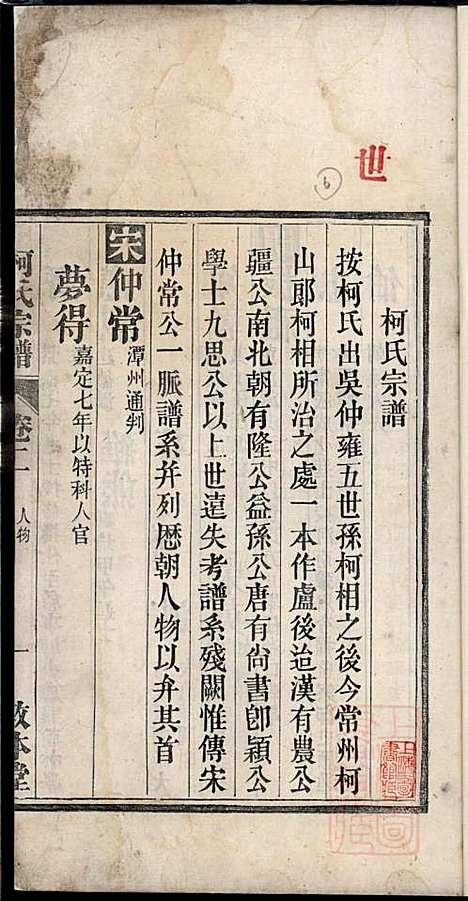 世
6
柯氏宗譜
按柯氏出吳仲雍五世孫柯相之後今常州柯
山郎柯相所治之處一本作盧後迨漢有農公
疆公南北朝有隆公益孫公唐有尙書卽穎公
學士九思公以上世遠失考譜系殘闕惟傳宋
仲常公一脈譜系幷列歷朝人物以弁其首
宋仲常 潭州通判
夢得 嘉定七年以特科入官
柯氏宗譜 卷二 人物 一 敦本堂